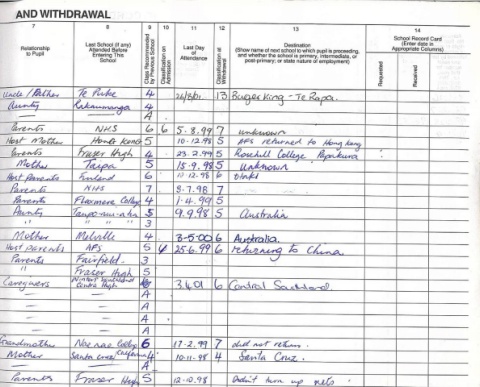 AND WITHDRAWAL
7 8 9 10 11 12 13 14
Relationship to Pupil
Last School (if any) Attended Before Entering This School
Class Recommended by Previous School
Classification on Admission
Last Day of Attendance
Classification at Withdrawal
Destination (Show name of next school to which pupil is proceeding, and whether the school is primary, intermediate, or post-primary; or state nature of employment)
School Record Card (Enter date in Appropriate Columns)
Requested
Received
Uncle/ Te Puke 4 13 Burger King - Te Rapa.
Aunty 4
— — A
Parents NHS 6 6 5.8.99 7 unknown
Host Mother Hong Kong 5 10.12.98 5 AFS returned to Hong Kong
Parents Fraser High 4 23.2.99 5 Rosehill College Papakura
Mother Taupo 5 15.9.98 5 unknown
Host Parents Finland 6 11.12.98 6
Parents NHS 7 9.7.98 7
Parents Flaxmere College 4 1.4.99 5
Aunty 5 9.9.98 5 Australia
" " " " 3
Mother Melville 4 3-5-00 6 Australia.
Host parents AFS 5 25.6.99 6 returning to China.
Parents Fairfield. 3
" Fraser High 5
Caregivers 3.4.01 6 Central Southland
— — A
— — A
— — A
— — A
Grandmother Naenae College 6 17.2.99 7 did not return.
Mother Santa Cruz California 4 10.11.98 4 Santa Cruz.
— — A
Parents Fraser High 5 12.10.98 Didn't turn up